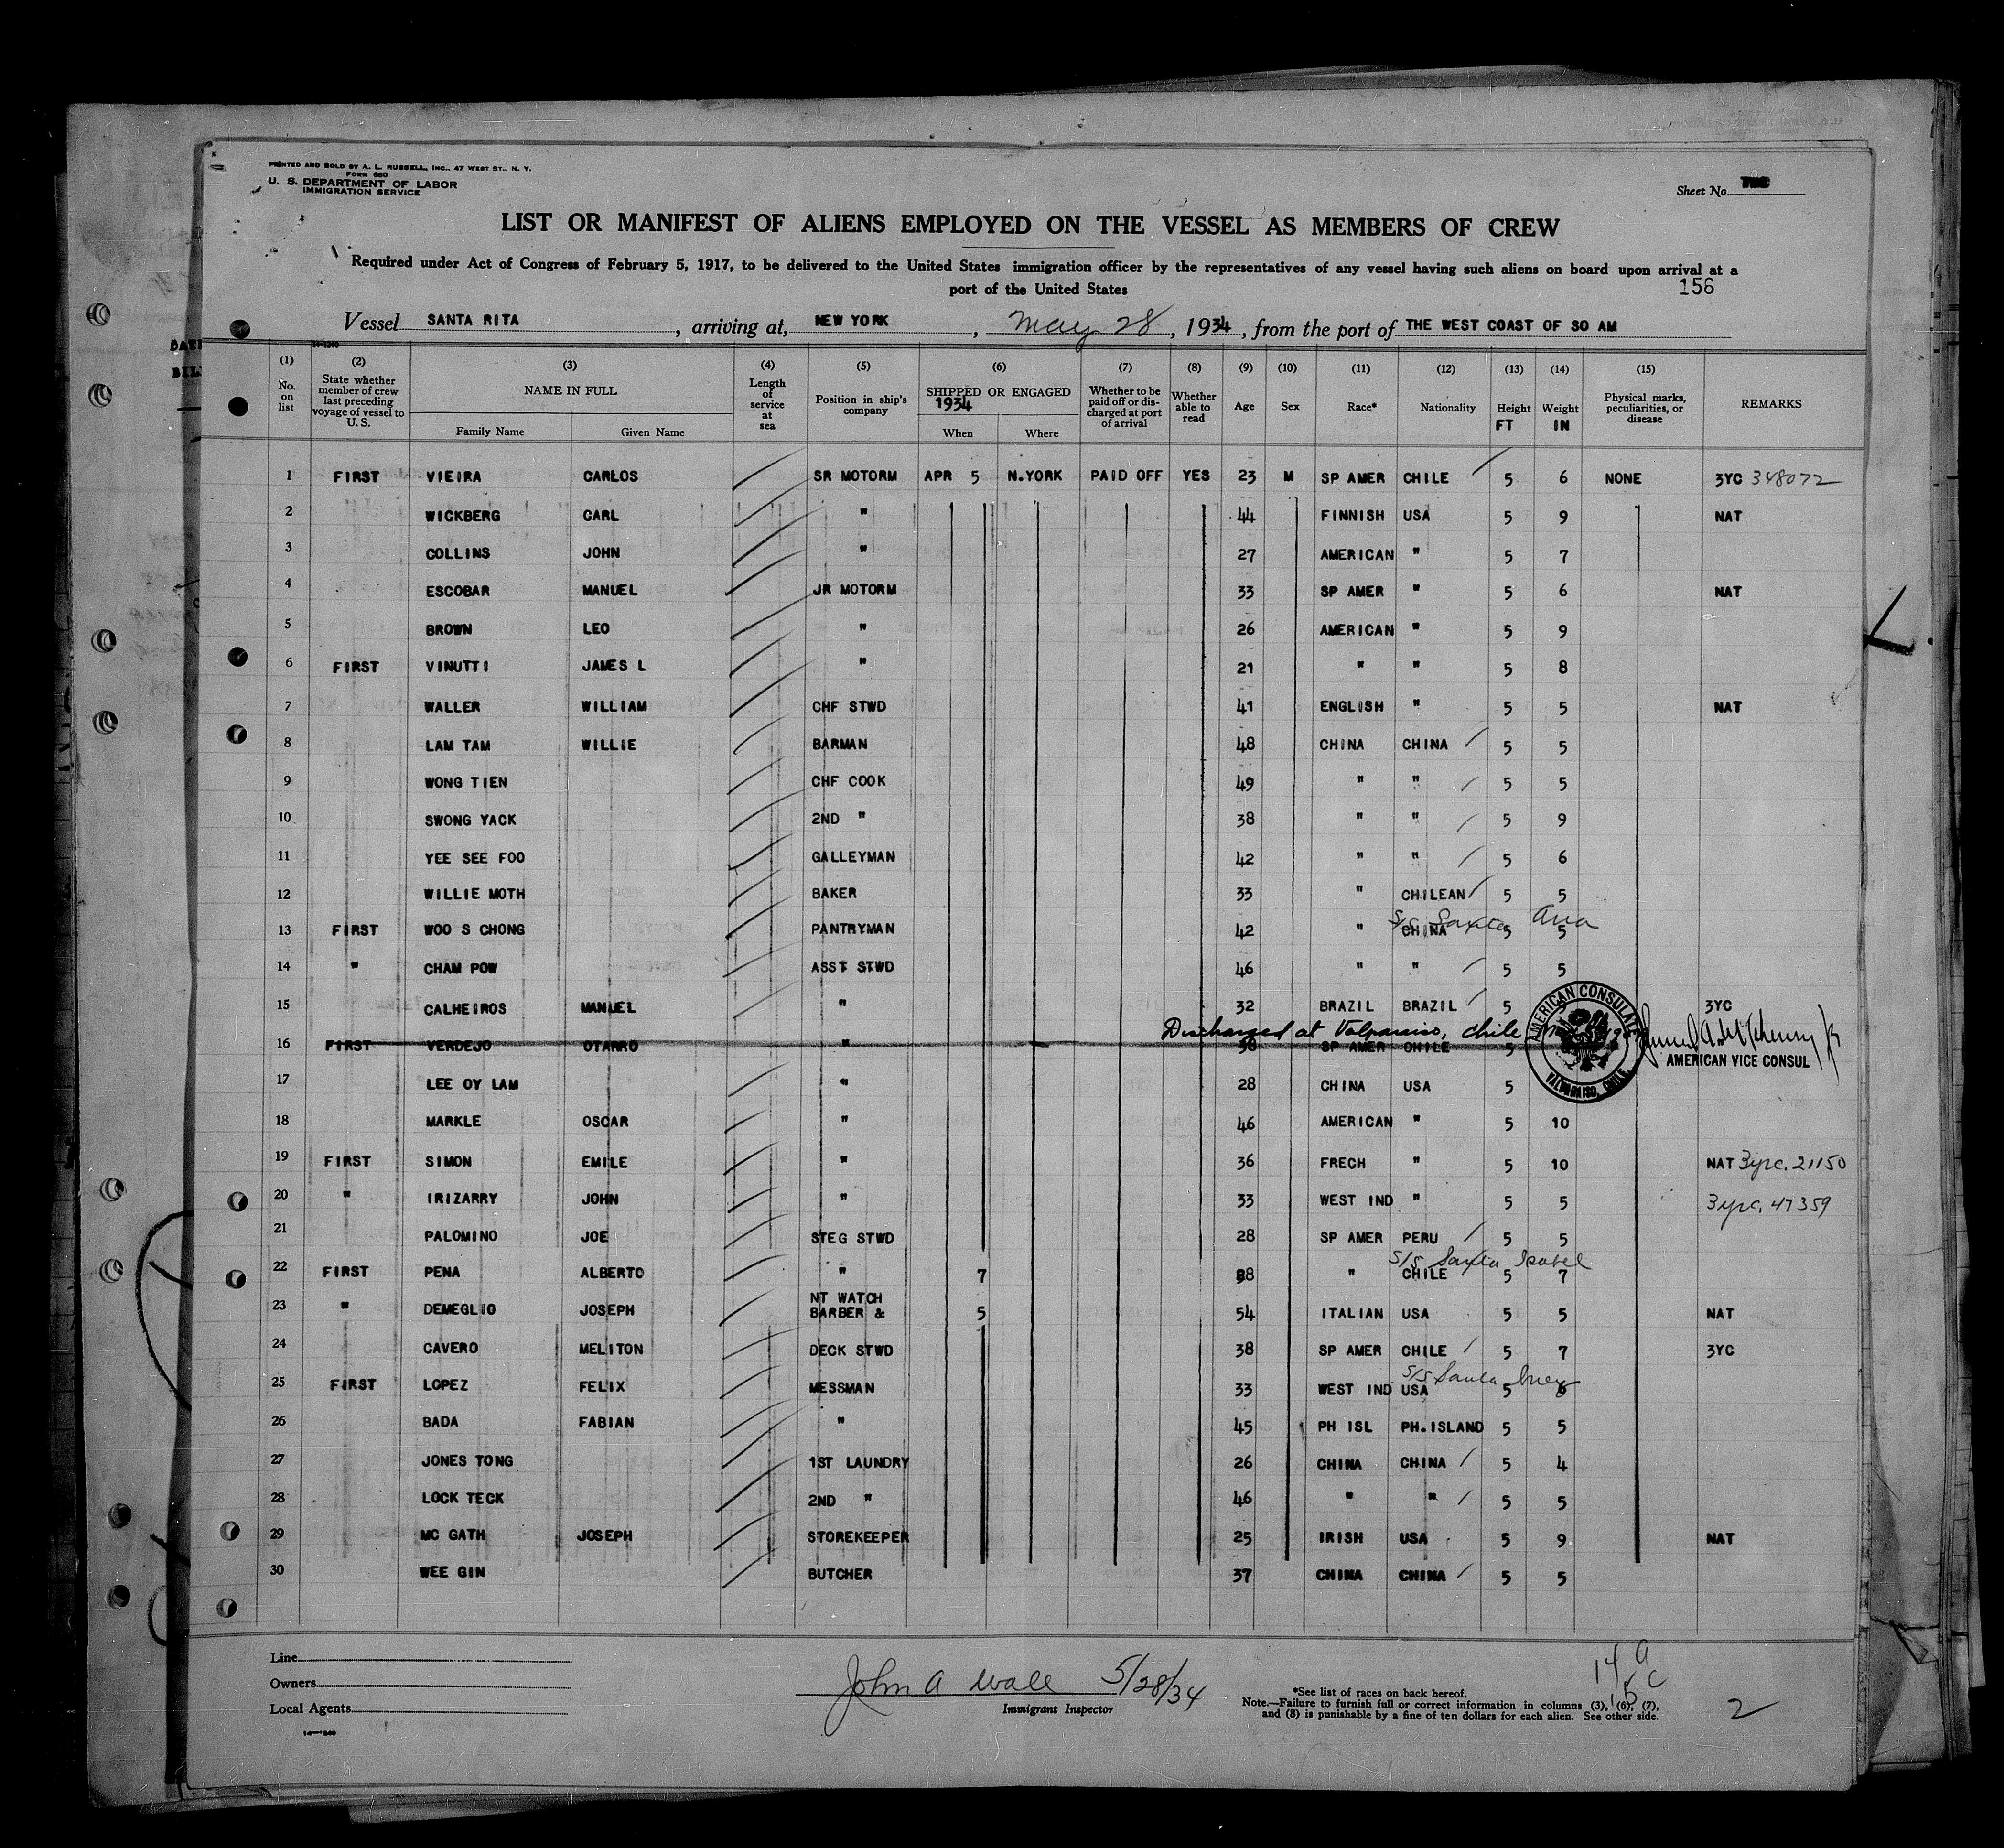 PRINTED AND SOLD BY A. L. RUSSELL, INC., 47 WEST ST., N. Y.
FORM 680
U. S. DEPARTMENT OF LABOR
IMMIGRATION SERVICE
Sheet No. TWO
LIST OR MANIFEST OF ALIENS EMPLOYED ON THE VESSEL AS MEMBERS OF CREW
Required under Act of Congress of February 5, 1917, to be delivered to the United States immigration officer by the representatives of any vessel having such aliens on board upon arrival at a
port of the United States
156
Vessel SANTA RITA, arriving at, NEW YORK, May 28, 1934, from the port of THE WEST COAST OF SO AM
(1) (2) (3) (4) (5) (6) (7) (8) (9) (10) (11) (12) (13) (14) (15)
No. on list State whether member of crew last preceding voyage of vessel to U. S. NAME IN FULL Family Name Given Name Length of service at sea Position in ship's company SHIPPED OR ENGAGED 1934 When Where Whether to be paid off or discharged at port of arrival Whether able to read Age Sex Race* Nationality Height FT Weight IN Physical marks, peculiarities, or disease REMARKS
1 FIRST VIEIRA CARLOS SR MOTORM APR 5 N.YORK PAID OFF YES 23 M SP AMER CHILE 5 6 NONE 3YC 348072
2 WICKBERG CARL " 44 FINNISH USA 5 9 NAT
3 COLLINS JOHN " 27 AMERICAN " 5 7
4 ESCOBAR MANUEL JR MOTORM 33 SP AMER " 5 6 NAT
5 BROWN LEO " 26 AMERICAN " 5 9
6 FIRST VINUTTI JAMES L " 21 " " 5 8
7 WALLER WILLIAM CHF STWD 41 ENGLISH " 5 5 NAT
8 LAM TAM WILLIE BARMAN 48 CHINA CHINA 5 5
9 WONG TIEN CHF COOK 49 " " 5 5
10 SWONG YACK 2ND " 38 " " 5 9
11 YEE SEE FOO GALLEYMAN 42 " " 5 6
12 WILLIE MOTH BAKER 33 " CHILEAN 5 5
S/S Santa Ana
13 FIRST WOO S CHONG PANTRYMAN 42 " CHINA 5 5
14 " CHAM POW ASST STWD 46 " " 5 5
15 CALHEIROS MANUEL " 32 BRAZIL BRAZIL 5 3YC
Discharged at Valparaiso, Chile
16 FIRST VERDEJO OTARRO " 36 SP AMER CHILE 5
AMERICAN CONSULATE VALPARAISO, CHILE.
AMERICAN VICE CONSUL
17 LEE OY LAM " 28 CHINA USA 5
18 MARKLE OSCAR " 46 AMERICAN " 5 10
19 FIRST SIMON EMILE " 36 FRECH " 5 10 NAT 3yrc. 21150
20 " IRIZARRY JOHN " 33 WEST IND " 5 5 3yrc. 47359
21 PALOMINO JOE STEG STWD 28 SP AMER PERU 5 5
S/S Santa Isabel
22 FIRST PENA ALBERTO " 7 38 " CHILE 5 7
NT WATCH
23 " DEMEGLIO JOSEPH BARBER & 5 54 ITALIAN USA 5 5 NAT
24 CAVERO MELITON DECK STWD 38 SP AMER CHILE 5 7 3YC
S/S Santa Inez
25 FIRST LOPEZ FELIX MESSMAN 33 WEST IND USA 5 6
26 BADA FABIAN " 45 PH ISL PH.ISLAND 5 5
27 JONES TONG 1ST LAUNDRY 26 CHINA CHINA 5 4
28 LOCK TECK 2ND " 46 " " 5 5
29 MC GATH JOSEPH STOREKEEPER 25 IRISH USA 5 9 NAT
30 WEE GIN BUTCHER 37 CHINA CHINA 5 5
Line
Owners
Local Agents
John A Wall 5/28/34
Immigrant Inspector
*See list of races on back hereof.
Note.—Failure to furnish full or correct information in columns (3), (6), (7),
and (8) is punishable by a fine of ten dollars for each alien. See other side.
2